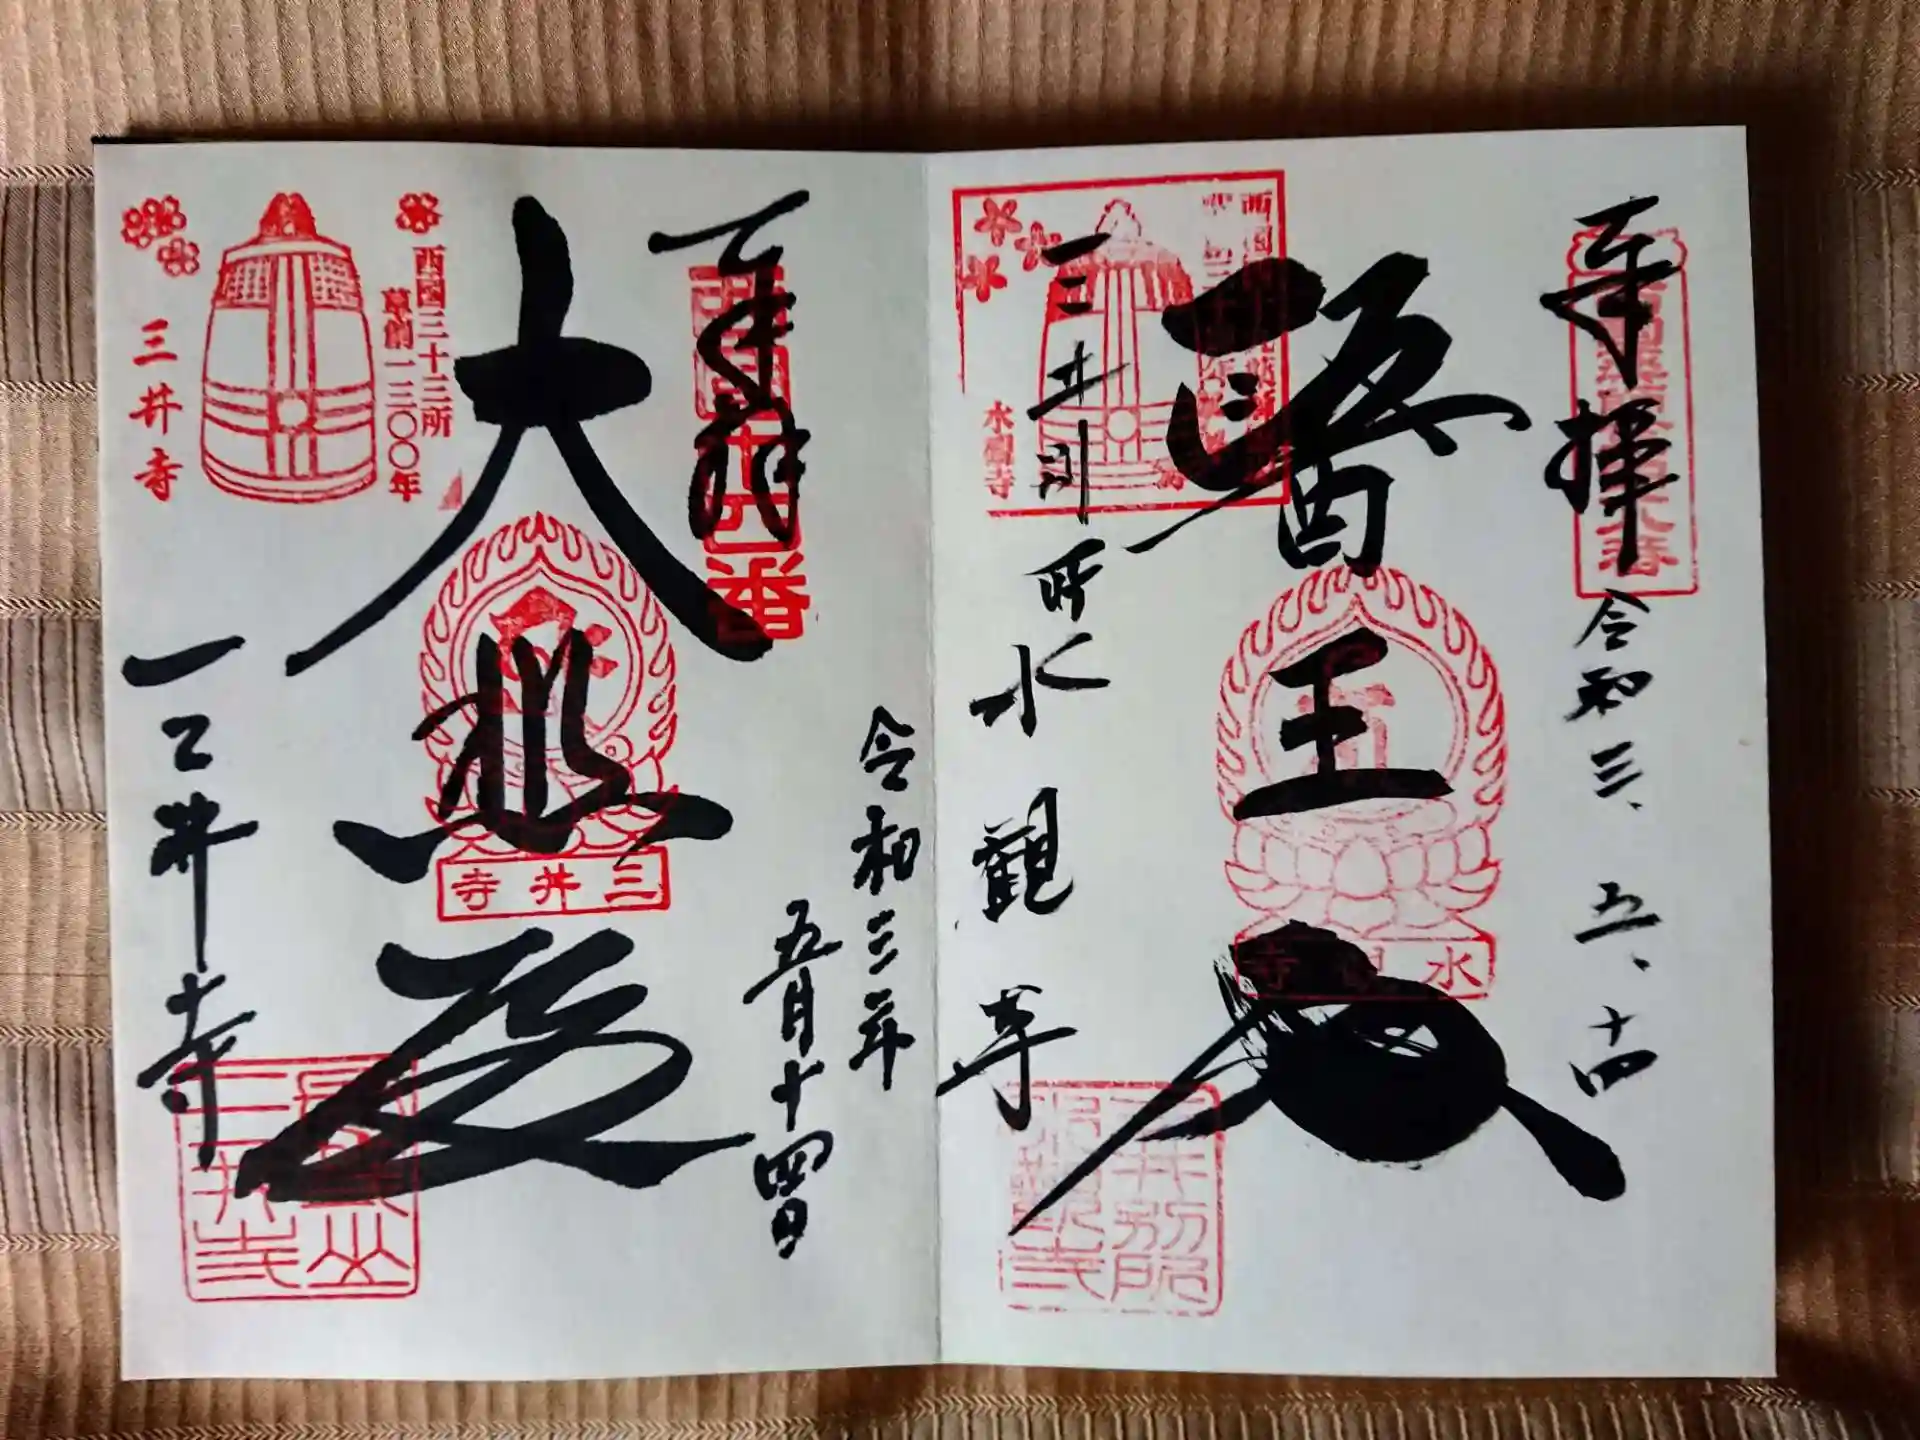 奉拝
令和三、五、十四
醫王殿
三井別所
水觀寺
水觀寺
水観寺
奉拝
令和三年
五月十四日
西国十四番
大悲殿
三井寺
西国三十三所
草創一三〇〇年
三井寺
三井寺
三井寺